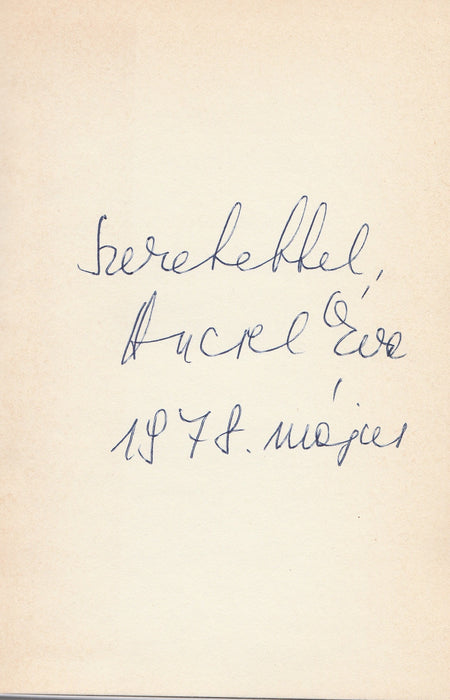 Szeretettel,
Ancsel Éva
1978. május